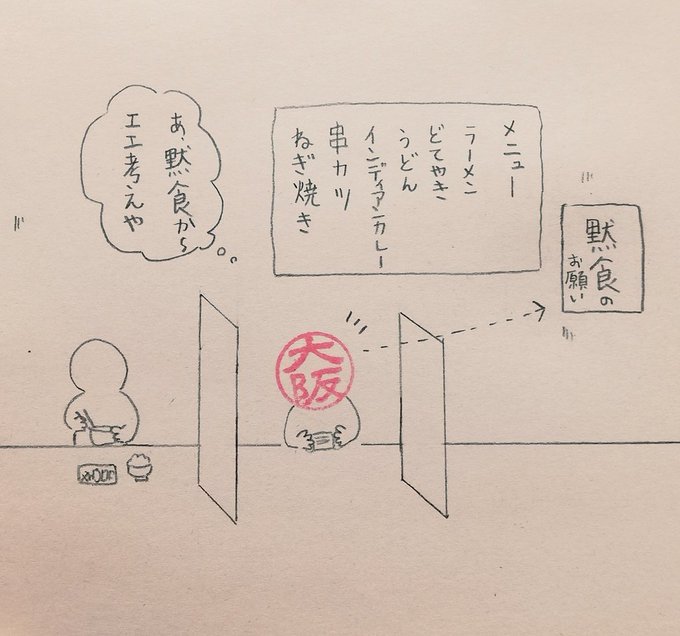 黙食の
お願い
メニュー
ラーメン
どてやき
うどん
インディアンカレー
串カツ
ねぎ焼き
あ、黙食か〜
エエ考えや
大阪